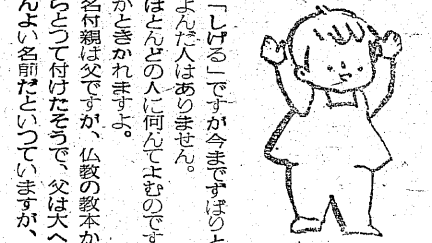 「しげる」ですが今までずばりと
よんだ人はありません。
ほとんどの人に何んてよむのです
かときかれますよ。
名付親は父ですが、仏教の教本か
らとつて付けたそうで、父は大へ
んよい名前だといつていますが、